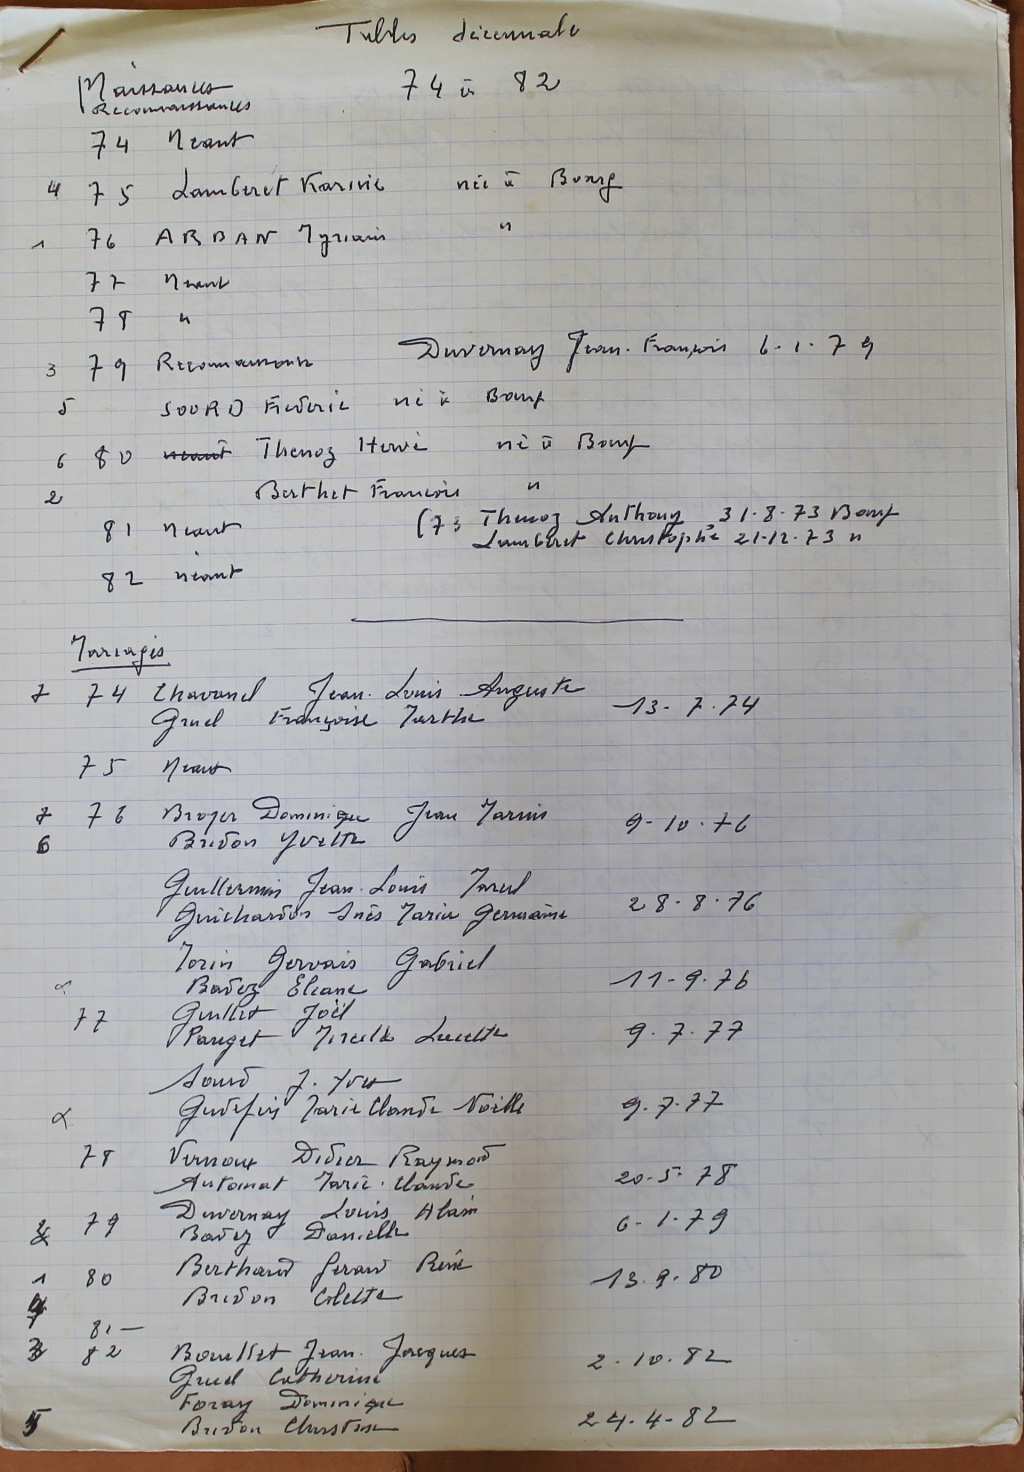 Tables décennale
Naissances 74 à 82
Reconnaissances
74 Néant
4 75 Lamberet Karine née à Bourg
1 76 ARBAN Myriam "
77 Néant
78 "
3 79 Reconnaissance Duvernay Jean-François 6-1-79
5 SOURD Frédéric né à Bourg
6 80 néant Thenoz Hervé né à Bourg
2 Berthet François "
81 néant (73 Thenoz Anthony 31-8-73 Bourg
Lamberet Christophe 21-12-73 "
82 néant
Mariages
7 74 Chavanel Jean-Louis Auguste
Gruel Françoise Marthe 13-7-74
75 Néant
7 76 Broyer Dominique Jean Marius
6 Bridon Yvette 9-10-76
Guillermin Jean-Louis Marcel
Guichardon Inès Marie Germaine 28-8-76
Morin Gervais Gabriel
Badez Eliane 11-9-76
77 Guillet Joël
Pauget Mireille Lucette 9-7-77
Sourd J. Yves
Gudefin Marie Claude Noëlle 9.7.77
78 Vernoux Didier Raymond
Automat Marie-Claude 20-5-78
79 Duvernay Louis Alain
Badez Danielle 6-1-79
1 80 Berthard Gérard René
Bridon Colette 13.9.80
81 —
3 82 Bouillet Jean-Jacques
Gruel Catherine 2-10-82
Foray Dominique
5 Bridon Christine 24-4-82